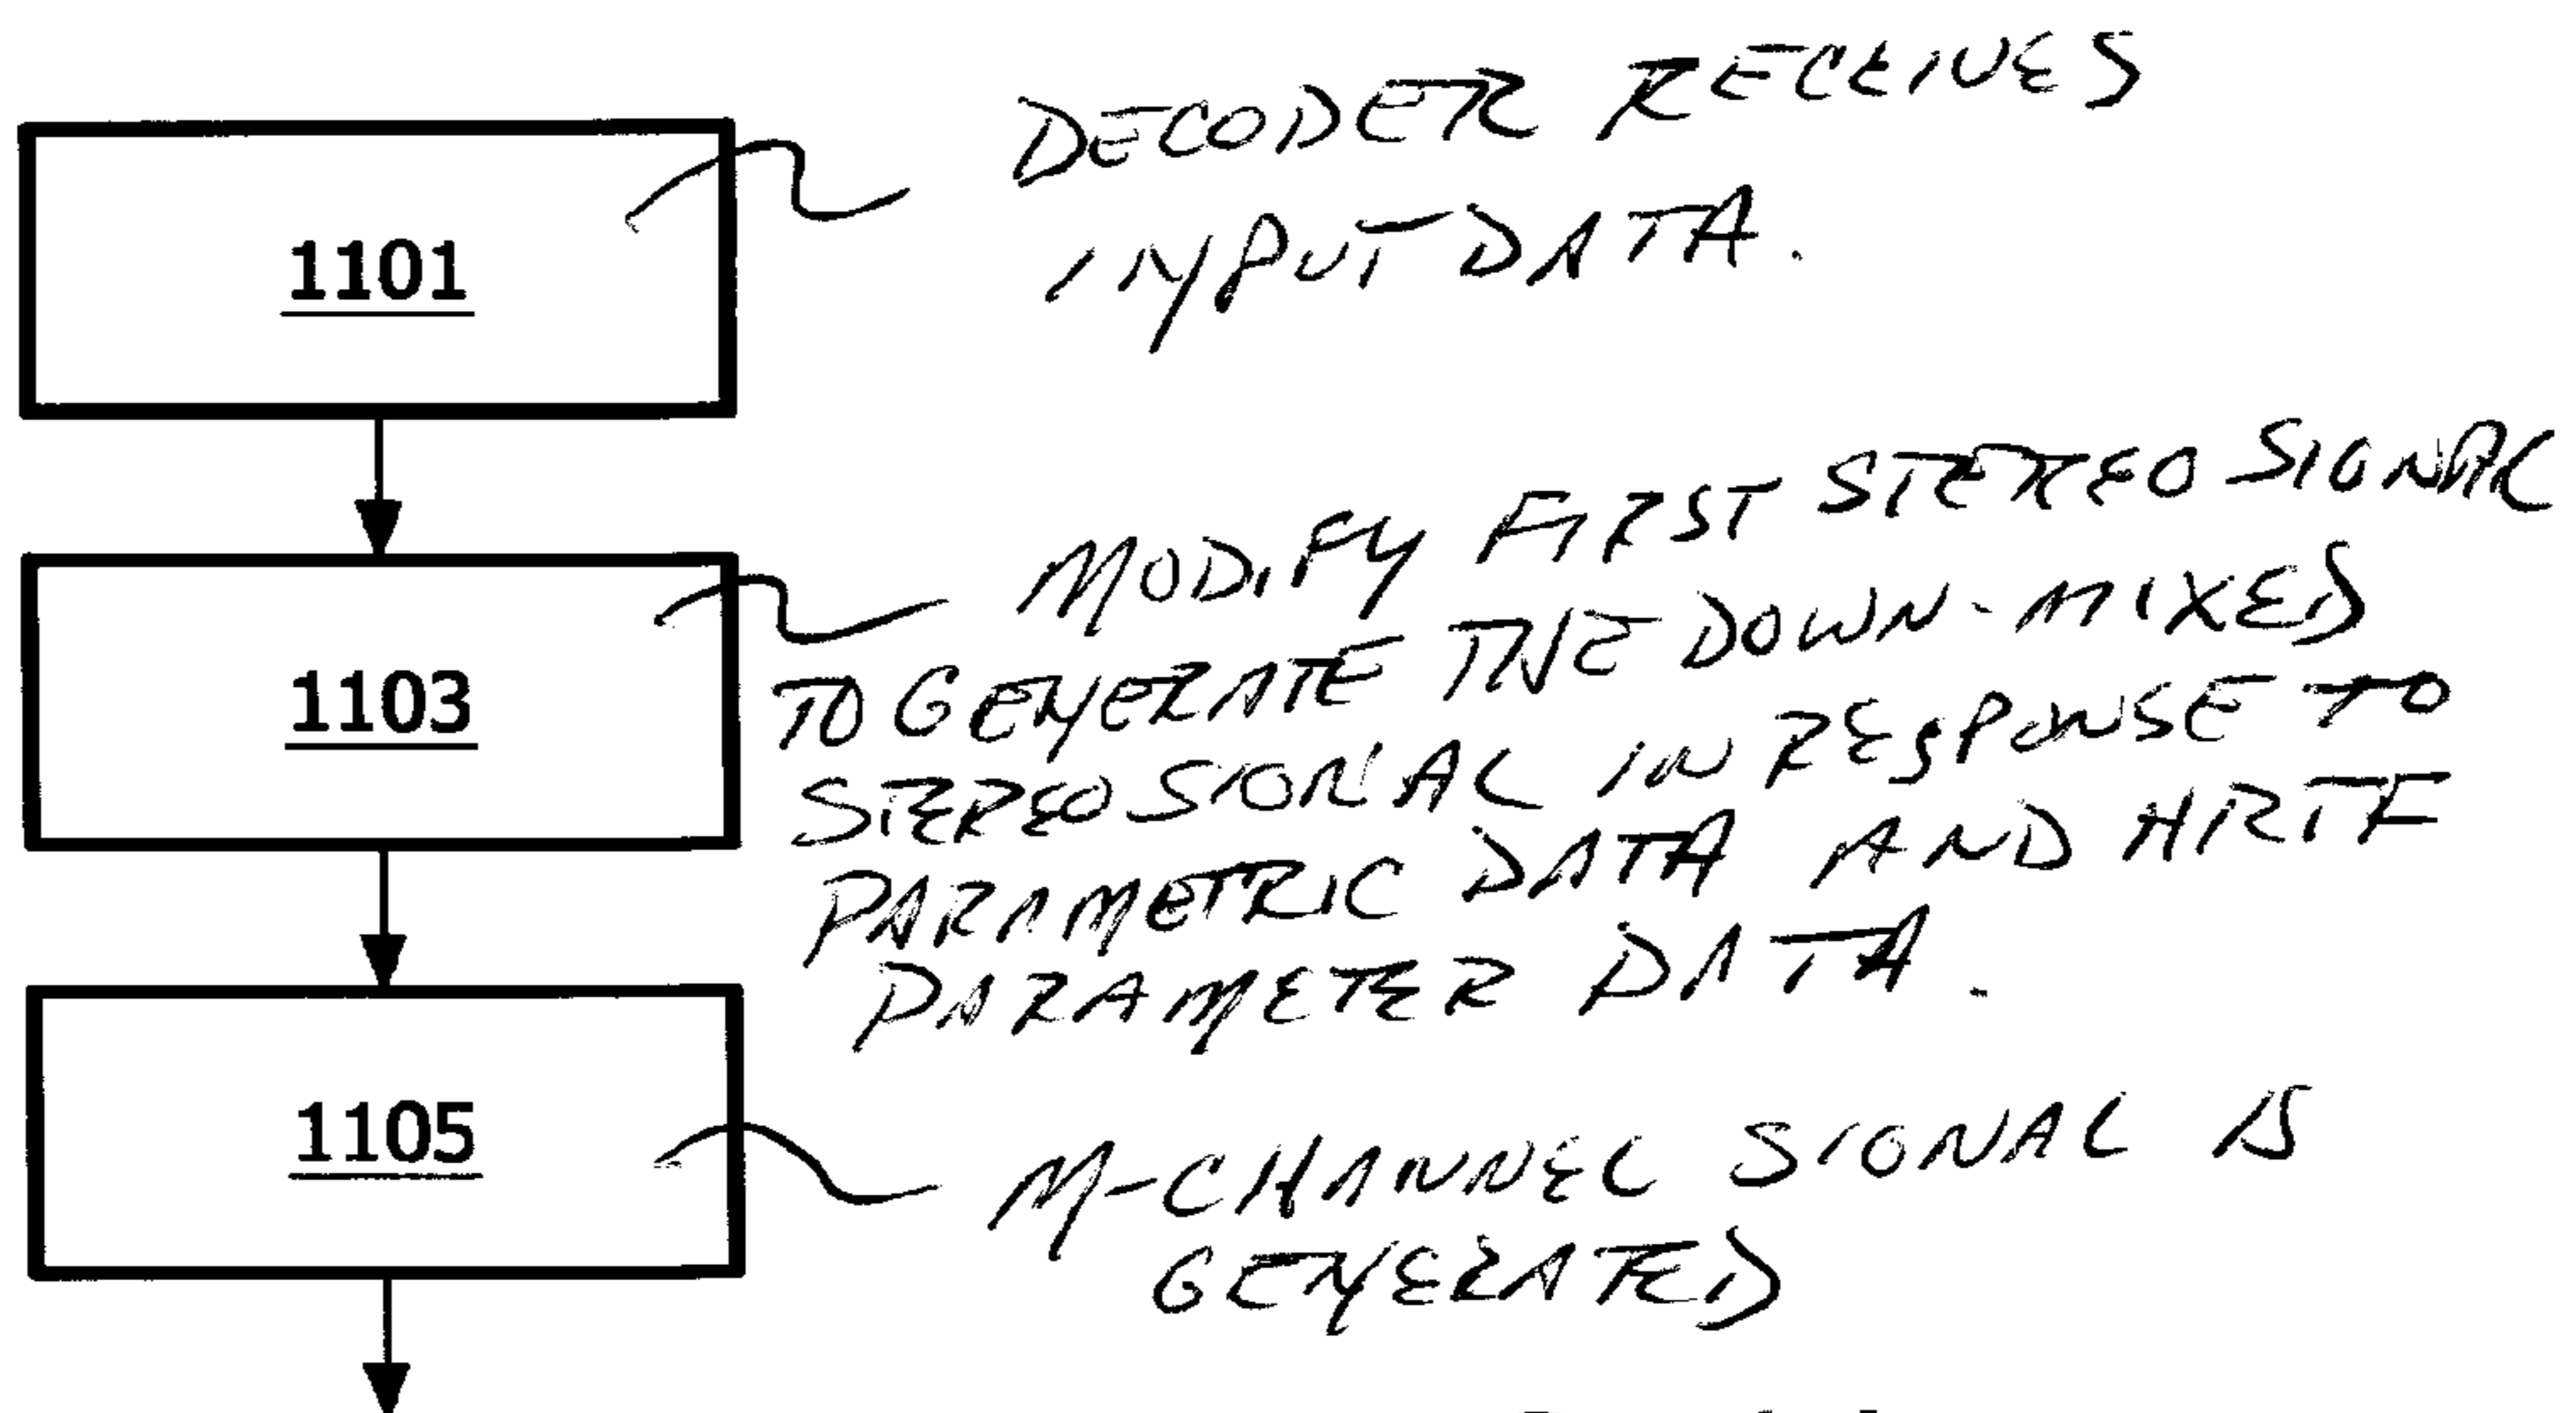 DECODER RECEIVES
INPUT DATA.
1101
MODIFY FIRST STEREO SIGNAL
TO GENERATE THE DOWN-MIXED
STEREO SIGNAL IN RESPONSE TO
PARAMETRIC DATA AND HRTF
PARAMETER DATA.
1103
M-CHANNEL SIGNAL IS
GENERATED
1105